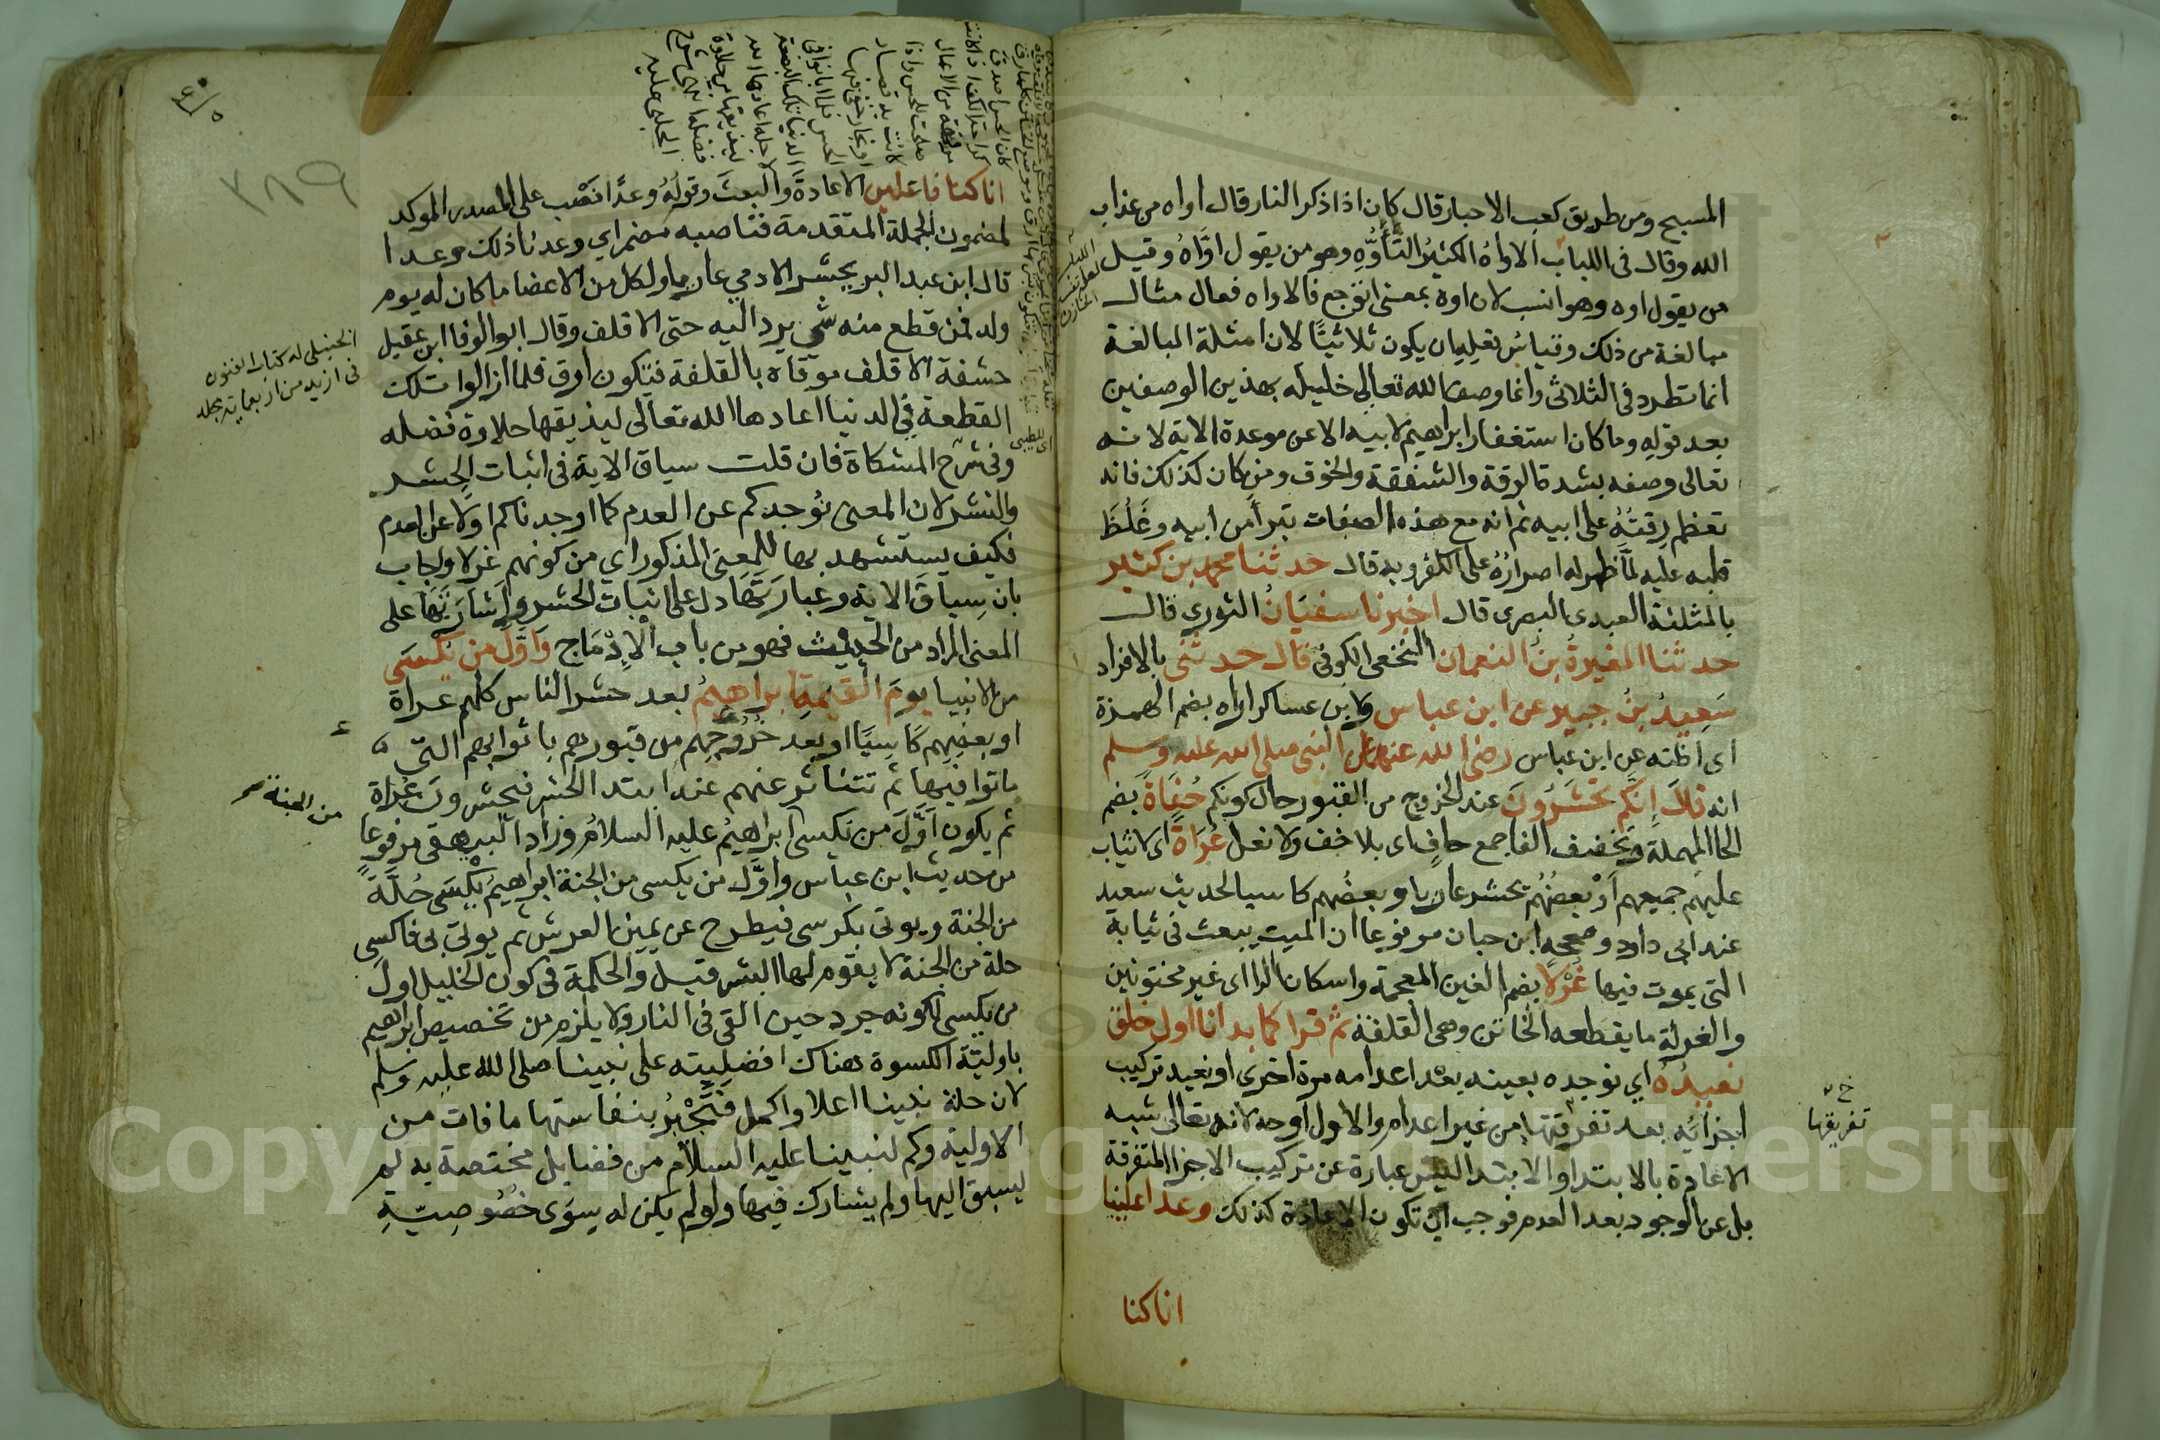 المسيح ومن طريق كعب الاحبار قال كان اذا ذكر النار قال اواه من عذاب
الله وقال فى اللباب الاواهُ الكثيرُ التَّأَوُّهِ وهو من يقول اوَّاهُ وقيل
من يقول اوه وهو انسب لان اوه بمعنى اتوجع فالاواه فعال مثال
مبالغة من ذلك وقياسُ فعلهِ ان يكون ثلاثيًّا لان امثلة المبالغة
انما تطرد فى الثلاثى وانما وصف الله تعالى خليله بهذين الوصفين
بعد قوله وما كان استغفار ابراهيم لابيه الا عن موعدة الاية لانه
تعالى وصفه بشدة الرقة والشفقة والخوف ومن كان كذلك فانه
تعظم رِقتُهُ على ابيه ثم انه مع هذه الصفات تبرأ من ابيه وغَلُظَ
قلبه عليه لمَّا ظهر له اصرارُهُ على الكفر وبه قال حدثنا محمد بن كثير
بالمثلثة العبدى البصرى قال اخبرنا سفيَانُ الثورى قال
حدثنا المغيرةُ بنُ النعمان النخعى الكوفى قال حدثنى بالافراد
سَعِيدُ بنُ جبير عن ابن عباس ولابن عساكر اراه بضم الهمزة
اى اظنه عن ابن عباس رضى الله عنهما عن النبى صلى الله عليه وسلم
انه قالَ إنَّكم تحشَرُونَ عند الخروج من القبور حال كونكم حُفاةً بضم
الحا المهملة وتخفيف الفا جمع حافٍ اى بلا خف ولا نعل عُرَاةً اى لا ثياب
عليهم جميعهم اوْ بعضُهُم يحشر عاريا وبعضُهم كاسيا لحديث سعيد
عند ابى داود وصححه ابن حبان مرفوعا ان الميت يبعث فى ثيابه
التى يموت فيها غُرْلا بضم الغين المعجمة واسكان الرا اى غير مختونين
والغرلة ما يقطعه الخاتن وهى القلفة ثم قرا كما بدانا اول خلق
نعيدُهُ اي نوجده بعينه بعد اعدامه مرة اخرى او نعيد تركيب
اجزائه بعد تفرقتها من غير اعدام والاول اوجه لانه تعالى شبه
الاعادة بالابتدا والابتدا ليس عبارة عن تركيب الاجزا المتفرقة
بل عن الوجود بعد العدم فوجب ان تكون الاعادة كذلك وعدا علينا
انا كنا
خ
تفريقها
انا كنا فاعلين الاعادةَ والبعثَ وقولُهُ وعدًا نصْب على المصدر الموكد
لمضمون الجملة المتقدمة فناصبه مضمر اي وعدنا ذلك وعدا
قال ابن عبد البر يحشر الادمي عاريا ولكل من الاعضا ما كان له يوم
ولد فمن قطع منه شي يرد اليه حتى الاقلف وقال ابو الوفا ابن عقيل
حشفة الاقلف موقاه بالقلفة فتكون ارق فلما ازالوا تلك
القطعة في الدنيا اعادها الله تعالى ليذيقها حلاوة فضله
وفى شرح المشكاة فان قلت سياق الاية فى اثبات الحشر
والنشر لان المعنى نُوجدكم عن العدم كما اوجدناكم اولا عن العدم
فكيف يستشهد بها للمعنى المذكور اي من كونهم غرلا واجاب
بان سِياقَ الاية وعبارَتَها دل على اثبات الحشر واشارَتها على
المعنى المراد من الحديث فهو من باب الإدْمَاج وَاوَّلُ من يُكْسَى
من الانبيا يومَ القيمةِ ابراهيمُ بعد حشر الناس كلهم عراة
او بعضِهم كَاسِيًا او بعد خُرُوجِهم من قبورهم باثوابهم التى
ماتوا فيها ثم تتناثر عنهم عند ابتدا الحشر فيحشرون عُراة
ثم يكون اَوَّلَ من يكسى ابراهيمُ عليه السلامُ وزاد البيهقى مرفوعا
من حديث ابن عباس واوَّل من يكسى من الجنة ابراهيمُ يُكْسَى حُلَّةً
من الجنة ويوتى بكرسى فيطرح عن يمين العرش ثم يوتى بى فاكسى
حلة من الجنة لا يقوم لها البشر قيل والحكمة فى كون الخليل اول
من يكسى لكونه جرد حين القى فى النار ولا يلزم من تخصيص ابراهيم
باوليَّة الكسوة هناك افضليته على نبينا صلى الله عليه وسلم
لان حلة نبينا اعلا واكمل فتَجْبُرُ بنفاستها ما فات من
الاولية وكم لنبينا عليه السلام من فضايل مختصة به لم
يسبق اليها ولم يشارك فيها ولو لم يكن له سِوَى خصُوصيَّةِ
الحنبلى له كتاب الفنون
فى ازيد من اربعماية مجلد
من الجنة صح
اى للطيبى
٣٨٩
Copyright © King Saud University